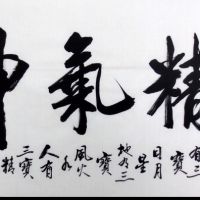 精氣神
有三
寶
日月
星
地有三
寶
風火
水
人有
三寶
精